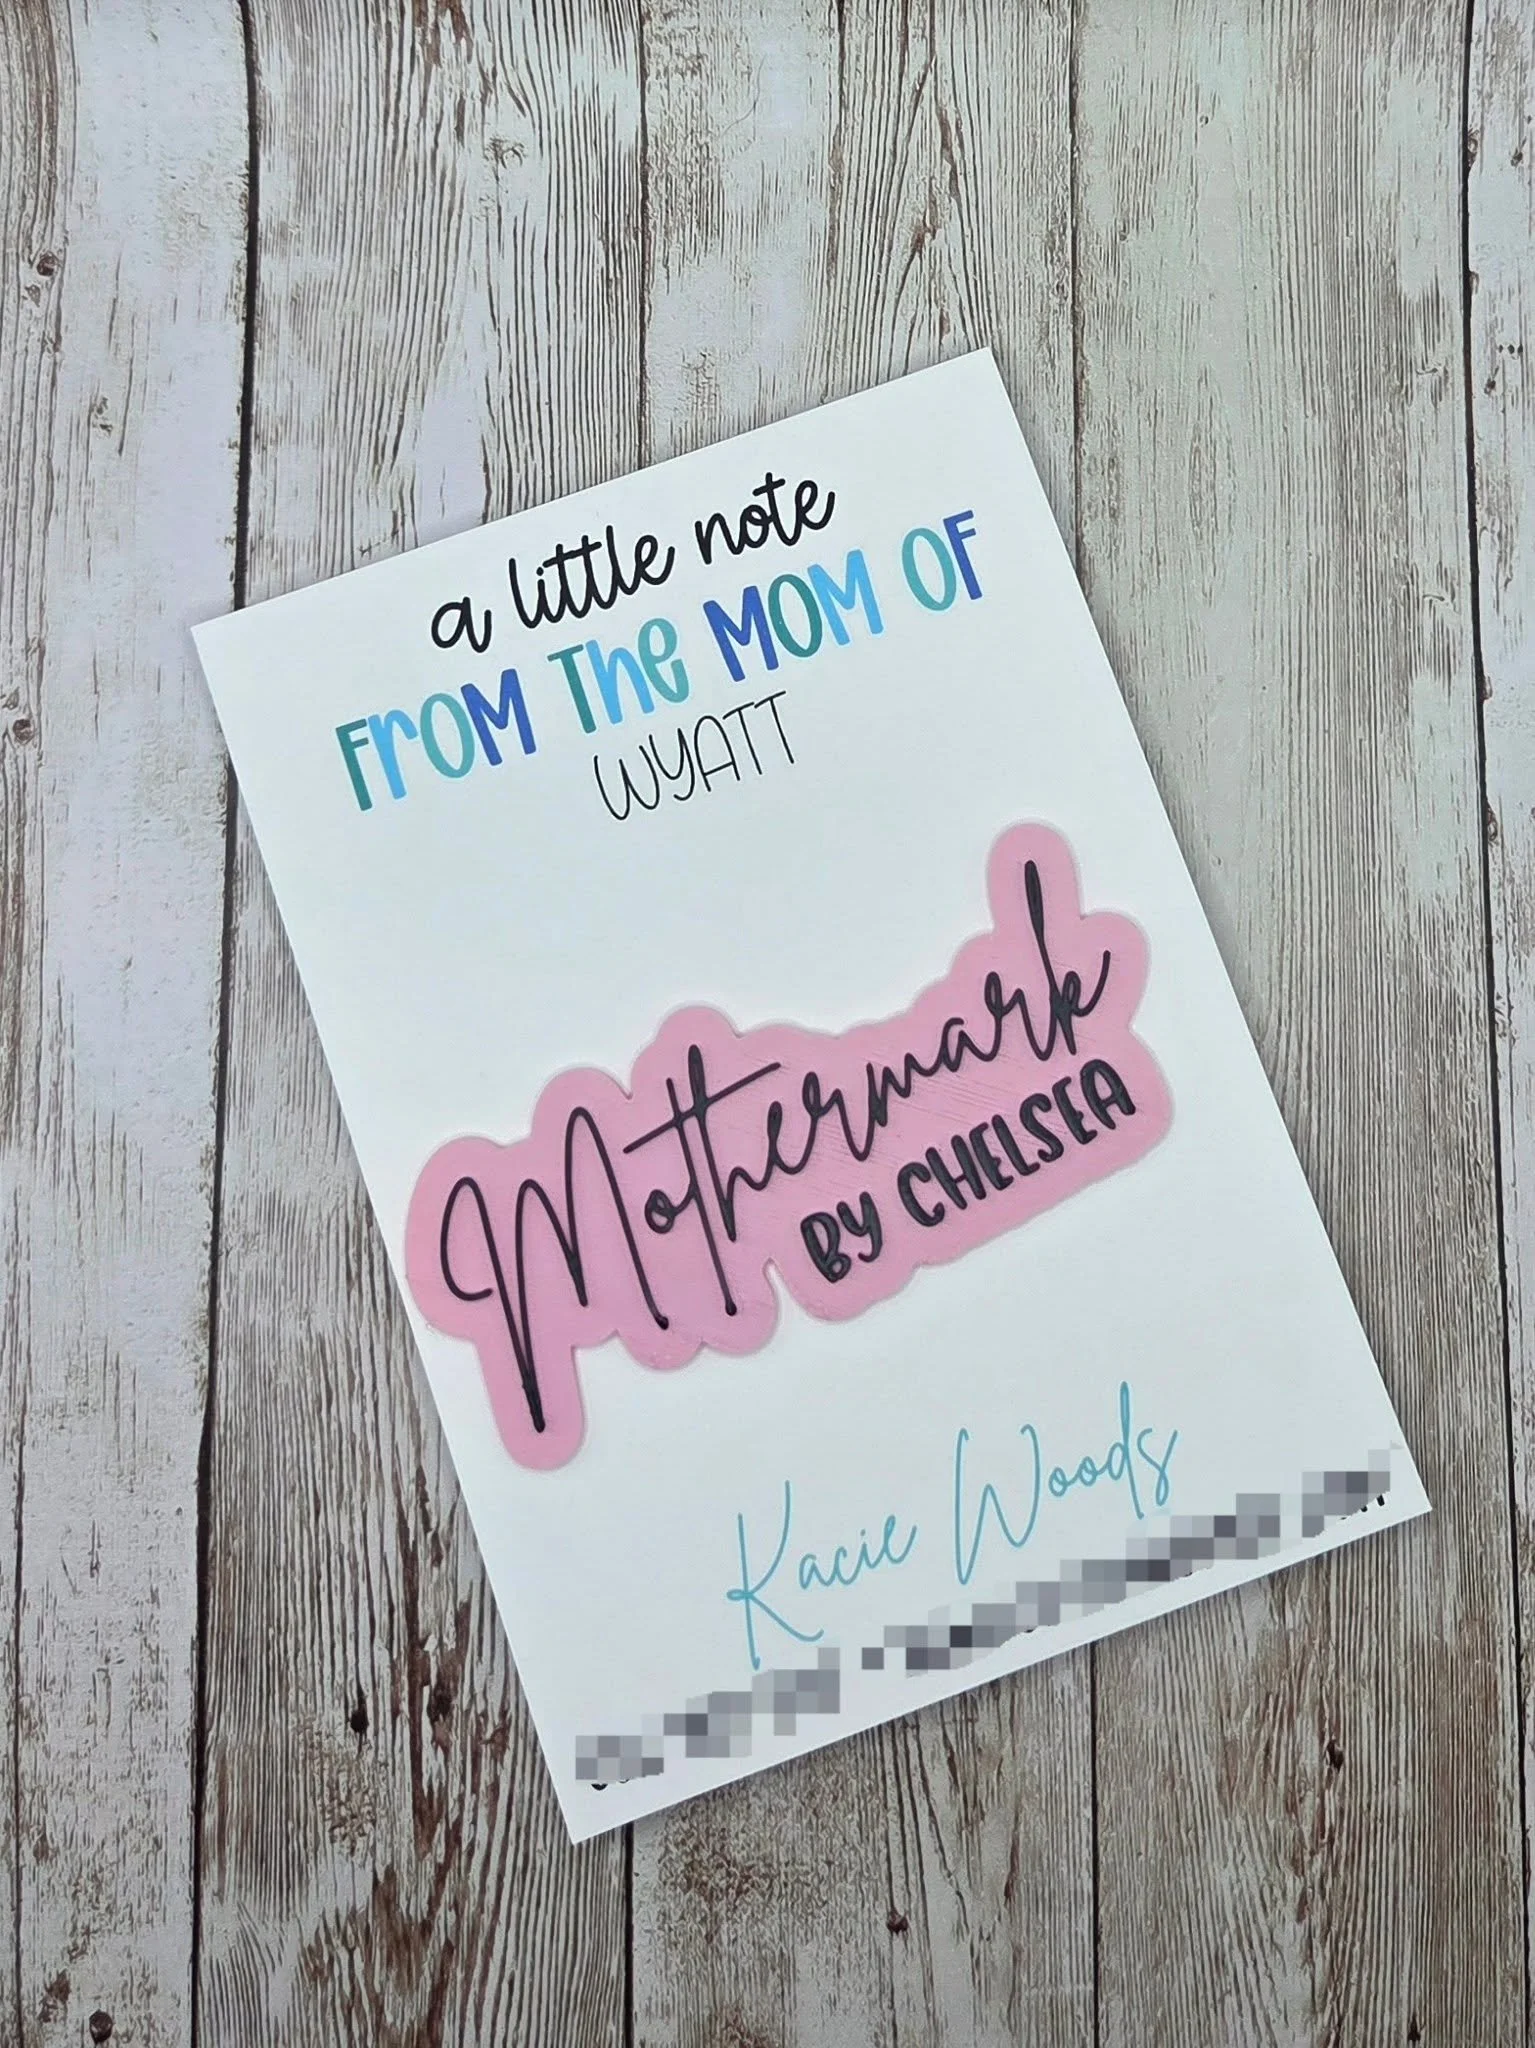 a little note
FROM THE MOM OF
WYATT
Mothermark
BY CHELSEA
Kacie Woods